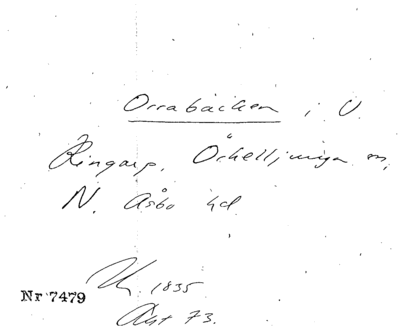 Orrabäcken i V.
Ringarp, Örkelljunga sn,
N. Åsbo hd.
Uh. 1835
Nr 7479
Akt 73.